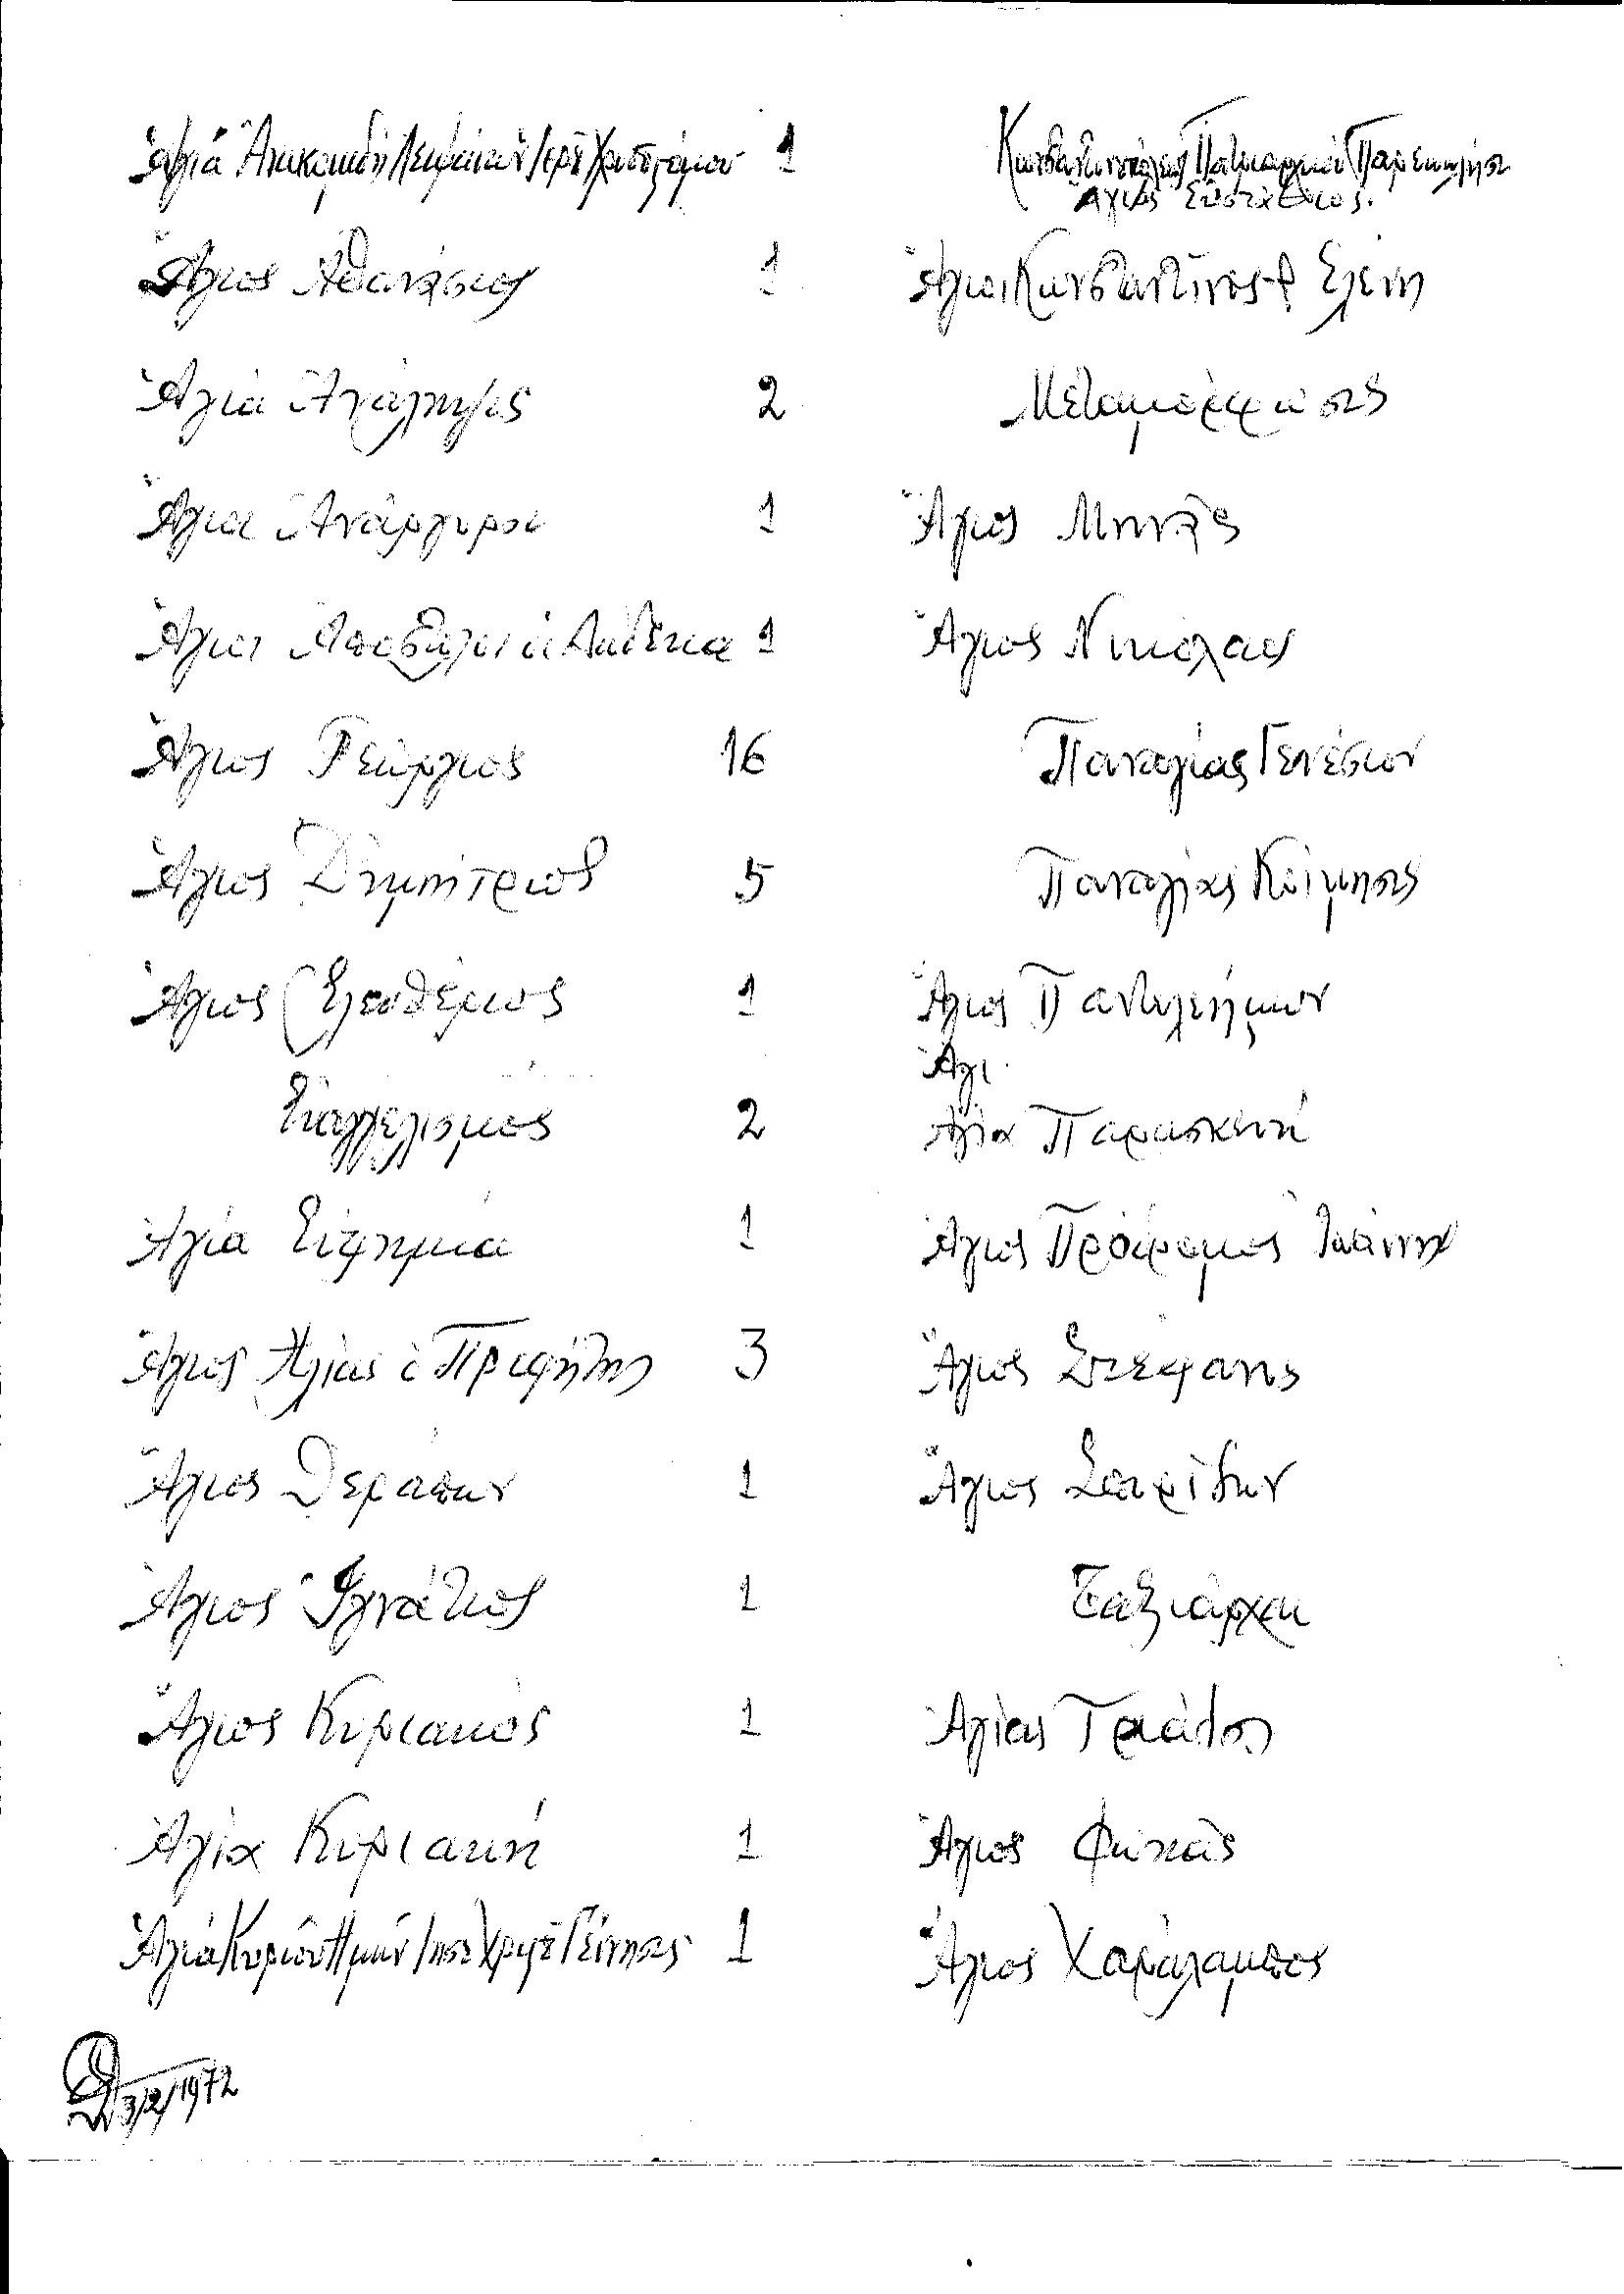 Ἁγιά Ἀνακομιδή Λειψάνων Ἱερ Χρυσοστόμου 1
Ἅγιος Ἀθανάσιος 1
Ἁγία Ἀνάληψις 2
Ἅγιοι Ἀνάργυροι 1
Ἅγιοι Ἀπόστολοι οἱ Δώδεκα 1
Ἅγιος Γεώργιος 16
Ἅγιος Δημήτριος 5
Ἅγιος Ἐλευθέριος 1
Εὐαγγελισμός 2
Ἁγία Εὐφημία 1
Ἅγιος Ἠλίας ὁ Προφήτης 3
Ἅγιος Θεράπων 1
Ἅγιος Ἰγνάτιος 1
Ἅγιος Κυριακός 1
Ἁγία Κυριακή 1
Ἁγιά Κυρίου Ἡμῶν Ἰησ Χριστ Γέννησις 1
3/2/1972
Κωνσταντινουπόλεως Πατριαρχικόν Παρεκκλήσι
Ἅγιος Εὐστάθιος.
Ἅγιοι Κωνσταντῖνος & Ἑλένη
Μεταμόρφωσις
Ἅγιος Μηνᾶς
Ἅγιος Νικόλαος
Παναγίας Γενέσιον
Παναγίας Κοίμησις
Ἅγιος Παντελεήμων
Ἁγι
Ἁγία Παρασκευή
Ἅγιος Πρόδρομος Ἰωάννης
Ἅγιος Στέφανος
Ἅγιος Σπυρίδων
Ταξιάρχαι
Ἁγίας Τριάδος
Ἅγιος Φωκᾶς
Ἅγιος Χαράλαμπος